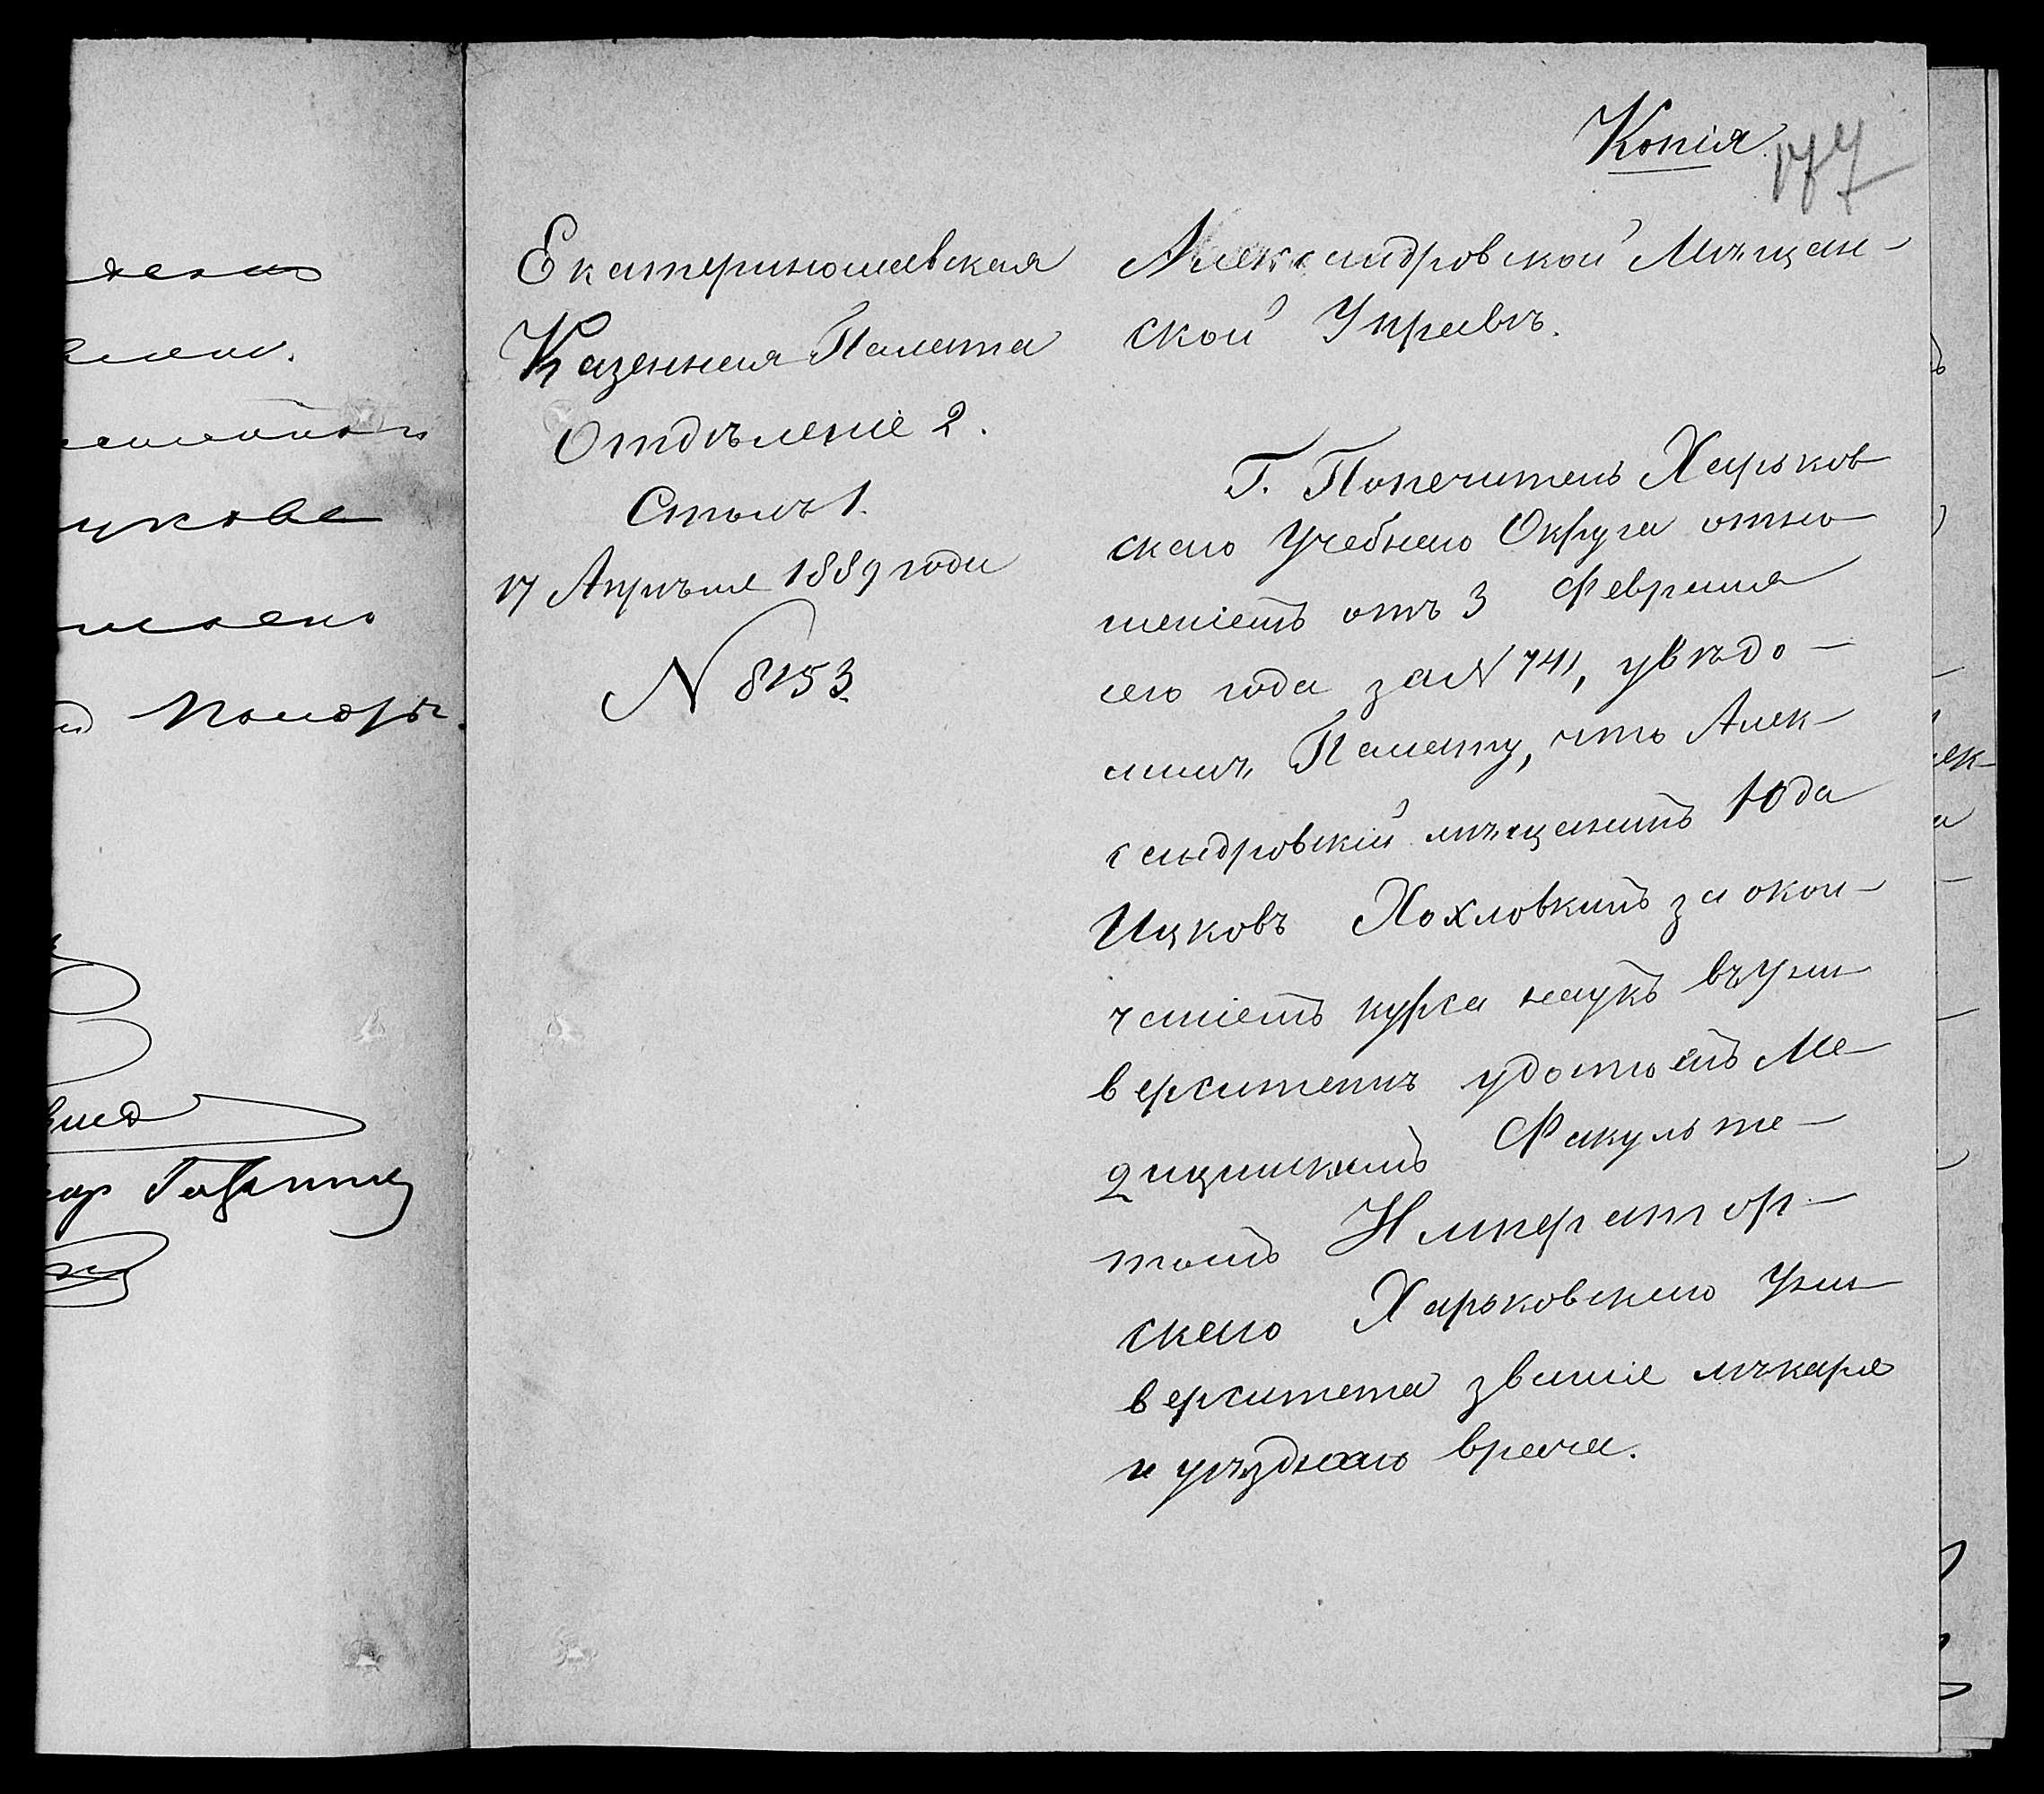 Копія
177
Екатеринославская
Казенная Палата
Отдѣленіе 2.
Столъ 1.
17 Апрѣля 1889 года
N 8153.
Александровской Мѣщан-
ской Управѣ.
Г. Попечитель Харьков
скаго Учебнаго Округа отно-
шеніемъ отъ 3 Февраля
сего года за N 741, увѣдо-
милъ Палату, что Алек-
сандровскій мѣщанинъ Юда
Ицковъ Хохловкинъ за окон-
чаніемъ курса наукъ въ Уни-
верситетѣ удостоенъ Ме-
дицинскимъ Факульте-
томъ Император-
скаго Харьковскаго Уни-
верситета званіе лѣкаря
и уѣзднаго врача.